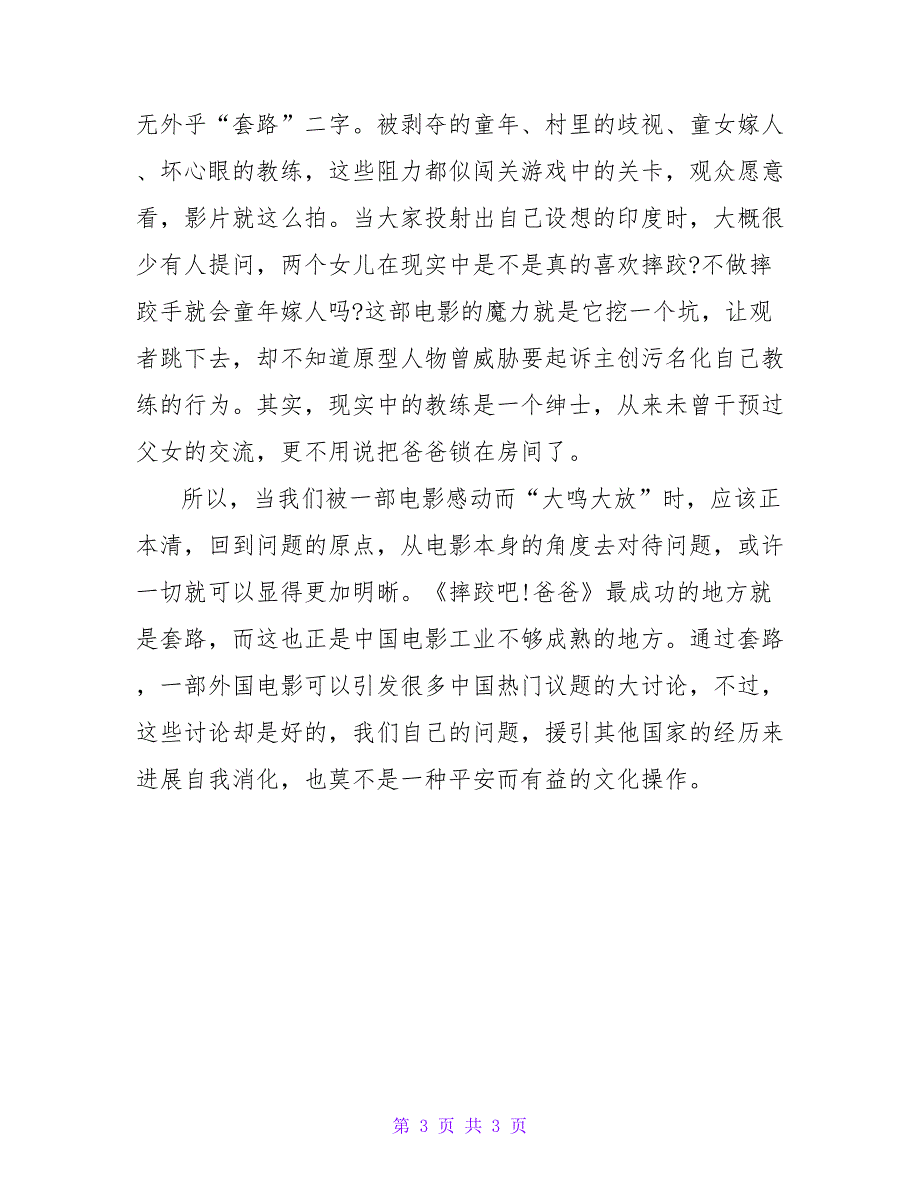 无外乎“套路”二字。被剥夺的童年、村里的歧视、童女嫁人
、坏心眼的教练，这些阻力都似闯关游戏中的关卡，观众愿意
看，影片就这么拍。当大家投射出自己设想的印度时，大概很
少有人提问，两个女儿在现实中是不是真的喜欢摔跤?不做摔
跤手就会童年嫁人吗?这部电影的魔力就是它挖一个坑，让观
者跳下去，却不知道原型人物曾威胁要起诉主创污名化自己教
练的行为。其实，现实中的教练是一个绅士，从来未曾干预过
父女的交流，更不用说把爸爸锁在房间了。
所以，当我们被一部电影感动而“大鸣大放”时，应该正
本清，回到问题的原点，从电影本身的角度去对待问题，或许
一切就可以显得更加明晰。《摔跤吧!爸爸》最成功的地方就
是套路，而这也正是中国电影工业不够成熟的地方。通过套路
，一部外国电影可以引发很多中国热门议题的大讨论，不过，
这些讨论却是好的，我们自己的问题，援引其他国家的经历来
进展自我消化，也莫不是一种平安而有益的文化操作。
第 3 页 共 3 页